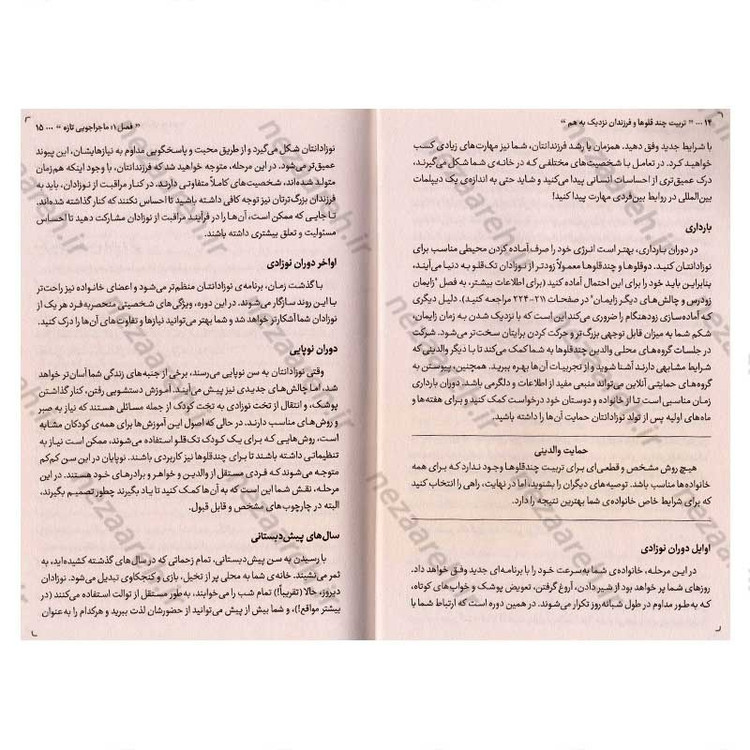 ۱۴ ... " تربیت چند قلوها و فرزندان نزدیک به هم "
با شرایط جدید وفق دهید. همزمان با رشد فرزندانتان، شما نیز مهارت‌های زیادی کسب
خواهید کرد. در تعامل با شخصیت‌های مختلفی که در خانه‌ی شما شکل می‌گیرند،
درک عمیق‌تری از احساسات انسانی پیدا می‌کنید و شاید حتی به اندازه‌ی یک دیپلمات
بین‌المللی در روابط بین‌فردی مهارت پیدا کنید!
بارداری
در دوران بارداری، بهتر است انرژی خود را صرف آماده کردن محیطی مناسب برای
نوزادانتان کنید. دوقلوها و چندقلوها معمولاً زودتر از نوزادان تک‌قلو به دنیا می‌آیند،
بنابراین باید خود را برای این احتمال آماده کنید (برای اطلاعات بیشتر، به فصل "زایمان
زودرس و چالش‌های دیگر زایمان" در صفحات ۲۱۱-۲۲۴ مراجعه کنید). دلیل دیگری
که آماده‌سازی زودهنگام را ضروری می‌کند این است که با نزدیک شدن به زمان زایمان،
شکم شما به میزان قابل توجهی بزرگ‌تر و حرکت کردن برایتان سخت‌تر می‌شود. شرکت
در جلسات گروه‌های محلی والدین چندقلوها به شما کمک می‌کند تا با دیگر والدینی که
شرایط مشابهی دارند آشنا شوید و از تجربیات آن‌ها بهره ببرید. همچنین، پیوستن به
گروه‌های حمایتی آنلاین می‌تواند منبعی مفید از اطلاعات و دلگرمی باشد. دوران بارداری
زمان مناسبی است تا از خانواده و دوستان خود درخواست کمک کنید و برای هفته‌ها و
ماه‌های اولیه پس از تولد نوزادانتان حمایت آن‌ها را داشته باشید.
حمایت والدینی
هیچ روش مشخص و قطعی‌ای برای تربیت چندقلوها وجود ندارد که برای همه
خانواده‌ها مناسب باشد. توصیه‌های دیگران را بشنوید، اما در نهایت، راهی را انتخاب کنید
که برای شرایط خاص خانواده‌ی شما بهترین نتیجه را دارد.
اوایل دوران نوزادی
در این مرحله، خانواده‌ی شما به‌سرعت خود را با برنامه‌ای جدید وفق خواهد داد.
روزهای شما پر خواهد بود از شیر دادن، آروغ گرفتن، تعویض پوشک و خواب‌های کوتاه،
که به‌طور مداوم در طول شبانه‌روز تکرار می‌شوند. در همین دوره است که ارتباط شما با
" فصل ۱: ماجراجویی تازه " ... ۱۵
نوزادانتان شکل می‌گیرد و از طریق محبت و پاسخگویی مداوم به نیازهایشان، این پیوند
عمیق‌تر می‌شود. در این مرحله، متوجه خواهید شد که فرزندانتان، با وجود اینکه هم‌زمان
متولد شده‌اند، شخصیت‌های کاملاً متفاوتی دارند. در کنار مراقبت از نوزادان، باید به
فرزندان بزرگ‌ترتان نیز توجه کافی داشته باشید تا احساس نکنند که کنار گذاشته شده‌اند.
تا جایی که ممکن است، آن‌ها را در فرآیند مراقبت از نوزادان مشارکت دهید تا احساس
مسئولیت و تعلق بیشتری داشته باشند.
اواخر دوران نوزادی
با گذشت زمان، برنامه‌ی نوزادانتان منظم‌تر می‌شود و اعضای خانواده نیز راحت‌تر
با این روند سازگار می‌شوند. در این دوره، ویژگی‌های شخصیتی منحصربه‌فرد هر یک از
نوزادان شما آشکارتر خواهد شد و شما بهتر می‌توانید نیازها و تفاوت‌های آن‌ها را درک کنید.
دوران نوپایی
وقتی نوزادانتان به سن نوپایی می‌رسند، برخی از جنبه‌های زندگی شما آسان‌تر خواهد
شد، اما چالش‌های جدیدی نیز پیش می‌آیند. آموزش دستشویی رفتن، کنار گذاشتن
پوشک، و انتقال از تخت نوزادی به تخت کودک از جمله مسائلی هستند که نیاز به صبر
و روش‌های مناسب دارند. در حالی که اصول این آموزش‌ها برای همه‌ی کودکان مشابه
است، روش‌هایی که برای یک کودک تک‌قلو استفاده می‌شوند، ممکن است نیاز به
تنظیماتی داشته باشند تا برای چندقلوها نیز کاربردی باشند. نوپایان در این سن کم‌کم
متوجه می‌شوند که فردی مستقل از والدین و خواهر و برادرهای خود هستند. در این
مرحله، نقش شما این است که به آن‌ها کمک کنید تا یاد بگیرند چطور تصمیم بگیرند،
البته در چارچوب‌های مشخص و قابل قبول.
سال‌های پیش‌دبستانی
با رسیدن به سن پیش‌دبستانی، تمام زحماتی که در سال‌های گذشته کشیده‌اید، به
ثمر می‌نشیند. خانه‌ی شما به محلی پر از تخیل، بازی و کنجکاوی تبدیل می‌شود. نوزادان
دیروز، حالا (تقریباً!) تمام شب را می‌خوابند، به‌طور مستقل از توالت استفاده می‌کنند (در
بیشتر مواقع!)، و شما بیش از پیش می‌توانید از حضورشان لذت ببرید و هرکدام را به‌عنوان
nezaareh.ir